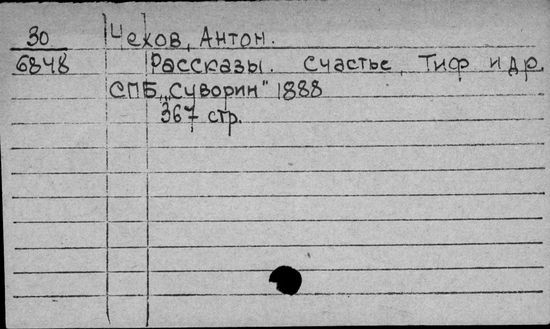 30 Чехов, Антон.
6848 Рассказы. Счастье, Тиф и др.
СПБ, „Суворин" 1888
367 стр.